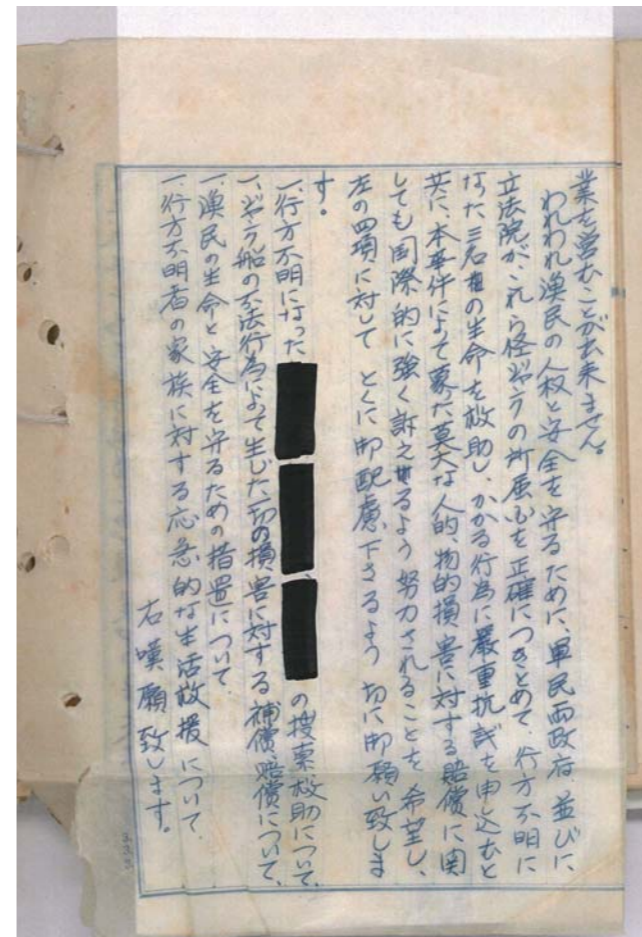 業を営むことが出来ません。
われわれ漁民の人权と安全を守るために、軍民両政府並びに
立法院が、これら怪ジャンクの所属を正確につきとめて、行方不明に
なった三名の生命を救助し、かかる行為に厳重抗議を申込むと
共に、本事件によって蒙った莫大な人的、物的損害に対する賠償に関
しても国際的に強く訴えるよう努力されることを希望し、
左の四項に対して とくに御配慮下さるよう 切に御願い致しま
す。
一、行方不明になった の捜索救助について、
一、ジャンク船の不法行為によって生じた一切の損害に対する補償賠償について、
一、漁民の生命と安全を守るための措置について
一、行方不明者の家族に対する応急的な生活救援について、
右嘆願致します。